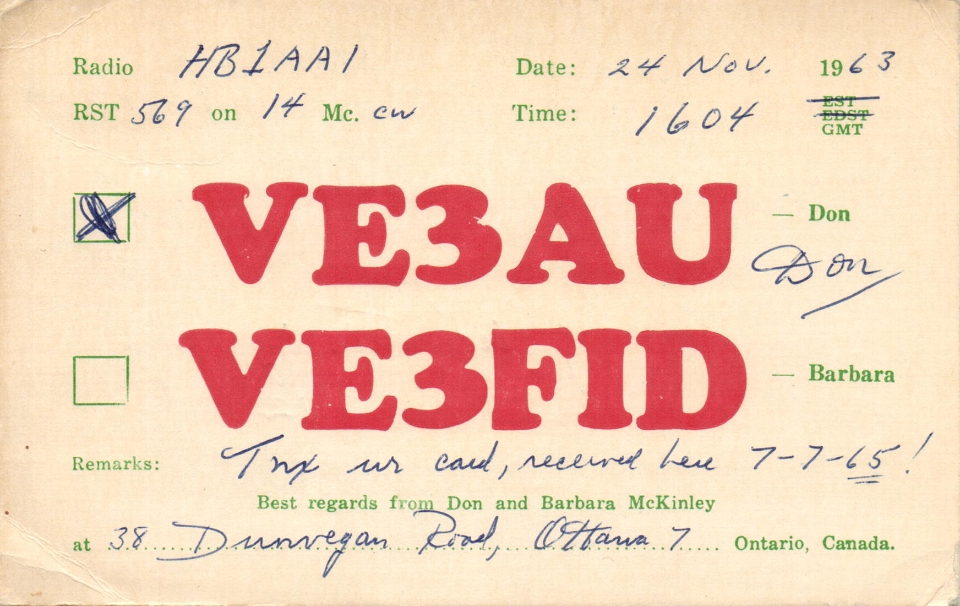 Radio HB1AAI Date: 24 Nov. 1963
RST 569 on 14 Mc. cw Time: 1604 EST EDST GMT
VE3AU — Don
Don
VE3FID — Barbara
Remarks: Tnx ur card, received here 7-7-65!
Best regards from Don and Barbara McKinley
at 38 Dunvegan Road, Ottawa 7 Ontario, Canada.